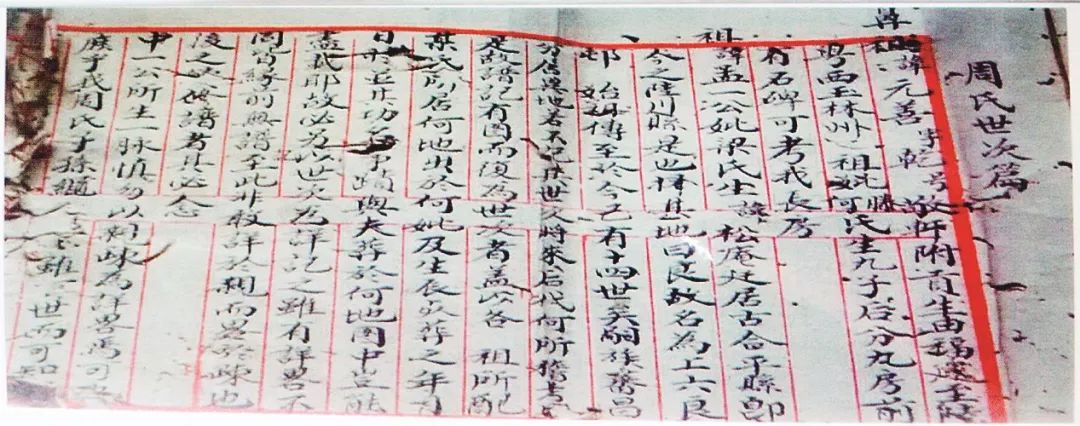 周氏世次篇
諱元善字乾号敬軒附貢生由瑞遷至
粤西玉林州祖妣何氏生九子后分九房前
有石碑可考我長房
祖諱孟一公妣梁氏生諱松庵廷居古合平縣即
今之陸川縣是也擇其地曰良故名為上六良
邨始祖傳至於今已有十四世矣嗣族蕃昌
分居異地若不記其世次將來后代何所據
是故譜既有图而須為世次者蓋以各祖所配
某氏所居何地出於何妣及生辰歿葬之年月
日形並其功名事蹟與夫葬於何地图中豈能
盡載耶故必为此世次为詳記之雖有詳畧不
同皆經前與譜至此非敢詳於親而畧於疎也
後之次始譜考其必念
中一公所生一脉慎勿以別疎为詳畧焉可也
庶乎我周氏子孫雖世而可知